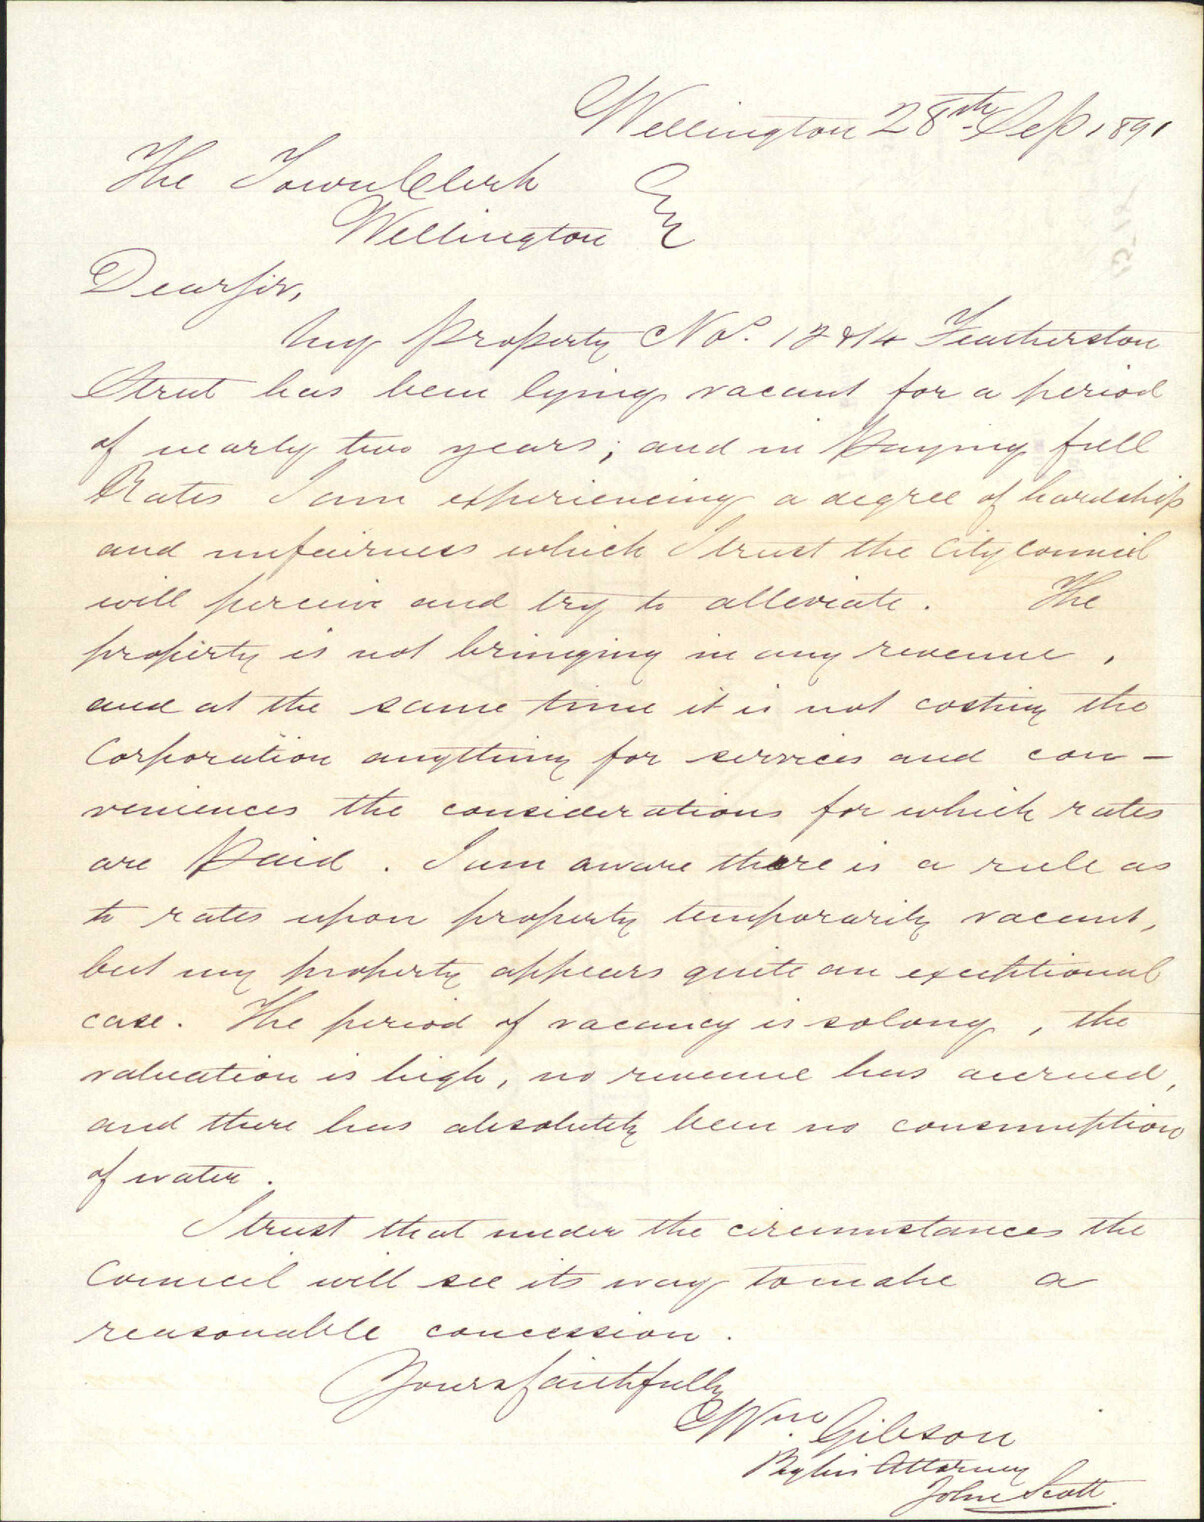 Wellington 28th Sep 1891
The Town Clerk
Wellington
Dear Sir,
My Property No. 12 & 14 Featherston
Street has been lying vacant for a period
of nearly two years; and in Paying full
Rates I am experiencing a degree of hardship
and unfairness which I trust the City Council
will perceive and try to alleviate. The
property is not bringing in any revenue,
and at the same time it is not costing the
Corporation anything for services and con-
veniences the considerations for which rates
are Paid. I am aware there is a rule as
to rates upon property temporarily vacant,
but my property appears quite an exceptional
case. The period of vacancy is so long, the
valuation is high, no revenue has accrued,
and there has absolutely been no consumption
of water.
I trust that under the circumstances the
Council will see its way to make a
reasonable concession.
Yours faithfully
Wm. Gibson
By his Attorney
John Scott